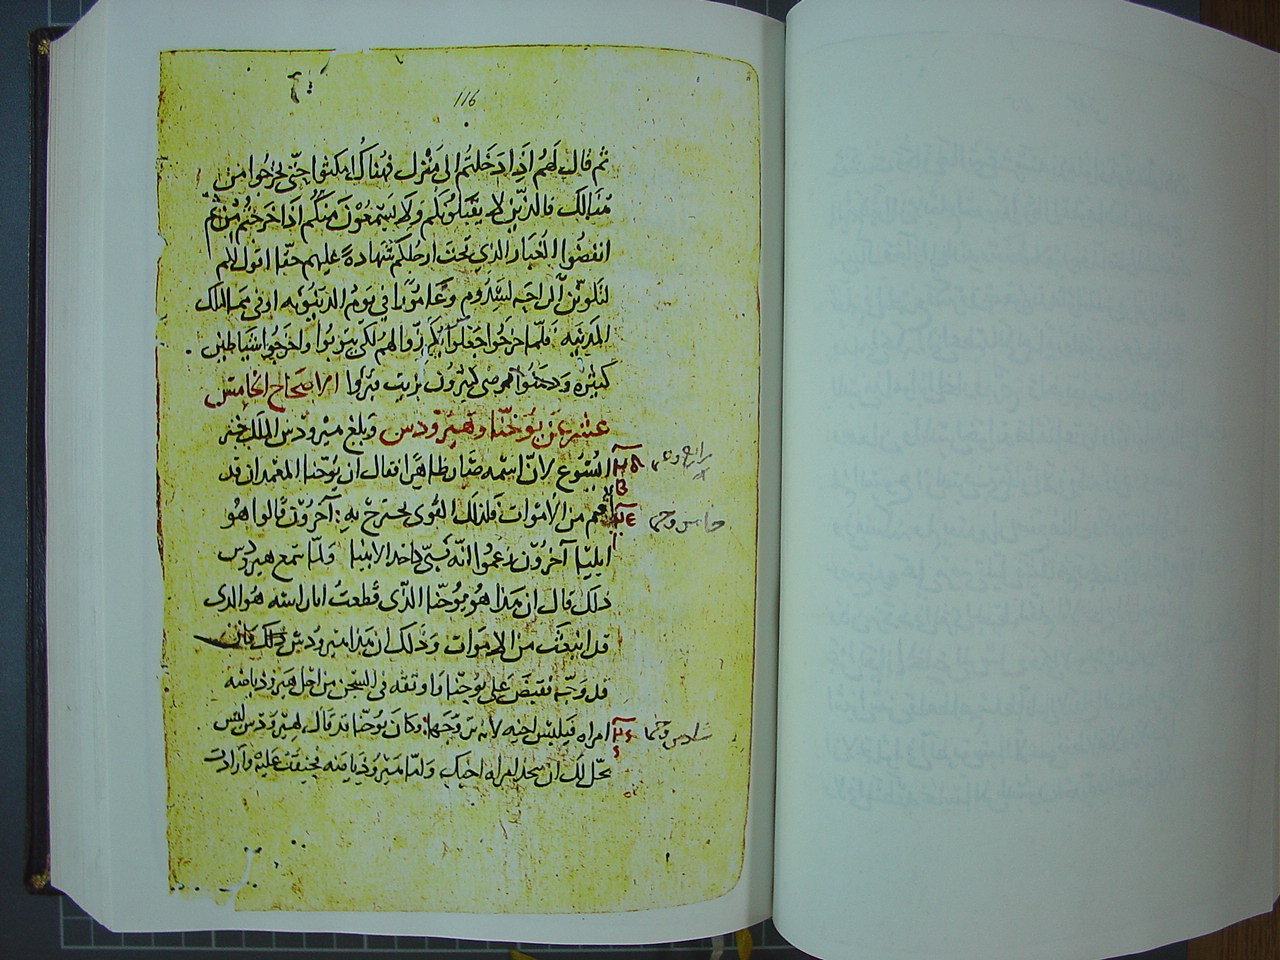 116
ثم قال لهم اذا دخلتم الى منزل فهناك امكثوا حتى تخرجوا من
هنالك فالذين لا يقبلونكم ولا يستمعون منكم اذا خرجتم من ثم
انفضوا الغبار الذي تحت ارجلكم شهادة عليهم حقا اقول لكم
لتكونن الراحه لسدوم وعامورا في يوم الدينونه اوفى من تلك
المدينه فلما خرجوا جعلوا يكرزوا لهم لكي يتوبوا واخرجوا شياطين
كثيره ودهنوا مرضى كثيرون بزيت فبروا الاصحاح الخامس
عشر عن يوحنا وهيرودس وبلغ هيرودس الملك خبر
اليسوع لان اسمه صار ظاهرا فقال ان يوحنا المعمدان قد
من الاموات فلذلك القوى تجترح به آخرون قالوا هو
ايليا آخرون زعموا انه نبي كاحد الانبيا ولما سمع هيرودس
ذلك قال ان هذا هو يوحنا الذي قطعت انا راسه هو الذي
قد انبعث من الاموات وذلك ان هذا هيرودس كان
قد وجه فقبض على يوحنا واوثقه في السجن من اجل هيروديا
امراه فيلبس اخيه لانه تزوجها وكان يوحنا قد قال لهيرودس ليس
يحل لك ان امراه اخيك ولما هيروديا عليه وارادت